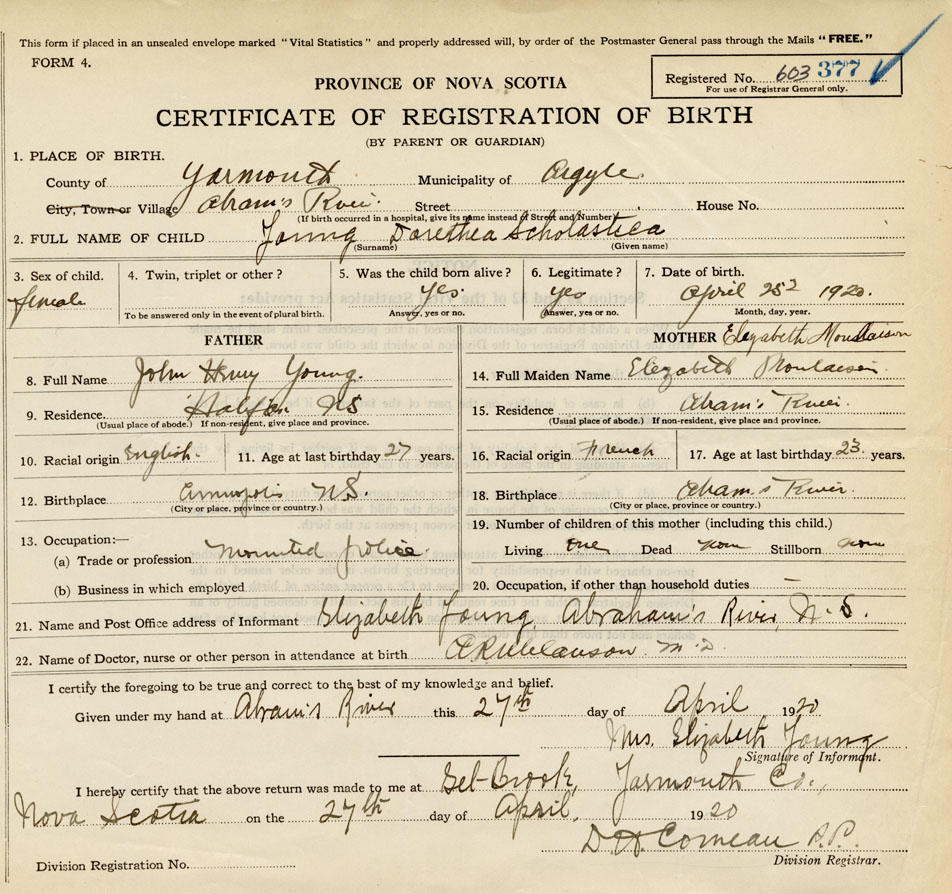 This form if placed in an unsealed envelope marked "Vital Statistics" and properly addressed will, by order of the Postmaster General pass through the Mails "FREE."
FORM 4.
Registered No. 603 377
For use of Registrar General only.
PROVINCE OF NOVA SCOTIA
CERTIFICATE OF REGISTRATION OF BIRTH
(BY PARENT OR GUARDIAN)
1. PLACE OF BIRTH.
County of Yarmouth Municipality of Argyle
City, Town or Village Abram's River. Street House No.
(If birth occurred in a hospital, give its name instead of Street and Number)
2. FULL NAME OF CHILD Young Dorethea Scholastica
(Surname) (Given name)
3. Sex of child. 4. Twin, triplet or other? 5. Was the child born alive? 6. Legitimate? 7. Date of birth.
female yes. yes April 25 1920.
To be answered only in the event of plural birth. Answer, yes or no. Answer, yes or no. Month, day, year.
FATHER MOTHER Elizabeth Moulaison
8. Full Name John Henry Young. 14. Full Maiden Name Elizabeth Moulaison
9. Residence Halifax NS 15. Residence Abram's River.
(Usual place of abode.) If non-resident, give place and province. (Usual place of abode.) If non-resident, give place and province.
10. Racial origin English. 11. Age at last birthday 27 years. 16. Racial origin French 17. Age at last birthday 23. years.
12. Birthplace Annapolis N.S. 18. Birthplace Abram's River.
(City or place, province or country.) (City or place, province or country.)
13. Occupation:— 19. Number of children of this mother (including this child.)
(a) Trade or profession Mounted police. Living one Dead none Stillborn none
(b) Business in which employed 20. Occupation, if other than household duties —
21. Name and Post Office address of Informant Elizabeth Young, Abraham's River, N.S.
22. Name of Doctor, nurse or other person in attendance at birth M.D.
I certify the foregoing to be true and correct to the best of my knowledge and belief.
Given under my hand at Abram's River this 27th day of April 1920
Mrs. Elizabeth Young
Signature of Informant.
I hereby certify that the above return was made to me at Eel-Brook, Yarmouth Co.,
Nova Scotia on the 27th day of April, 1920
D. H. Comeau
Division Registrar.
Division Registration No.